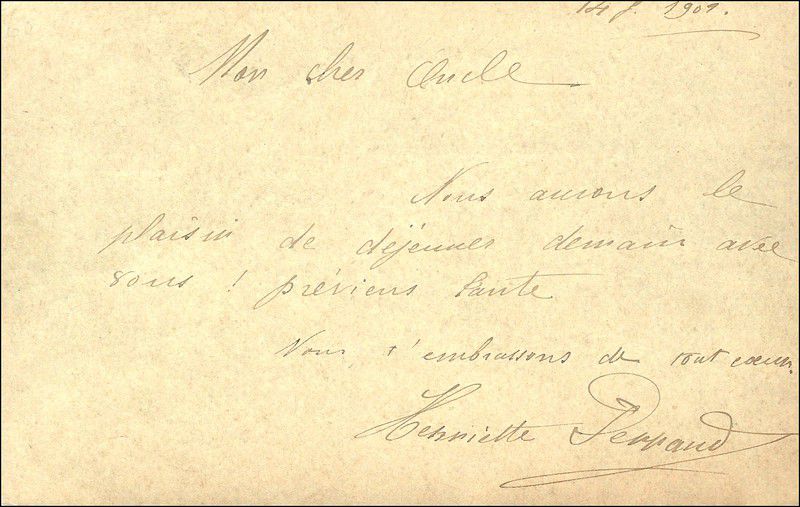 14 f. 1901.
Mon cher Oncle
Nous aurons le
plaisir de déjeuner demain avec
vous ! préviens tante
Nous t'embrassons de tout coeur.
Henriette Perraud